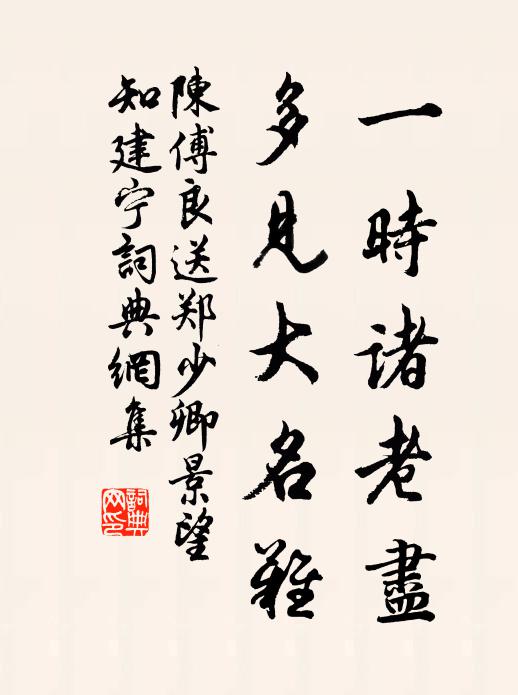 一時诸老盡
多見大名難
陳傅良送郑少卿景望
知建宁詞典網集
詞典网印